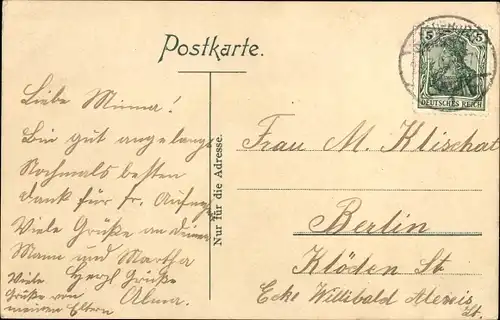 Postkarte.
5 5
DEUTSCHES REICH
Liebe Minna!
Bin gut angelangt
Nochmals besten
dank für fr. Aufna
Viele Grüße an deinen
Mann und Martha
Herzl Grüße
Alma.
Viele
Grüße von
meinen Eltern
Nur für die Adresse.
Frau M. Klischat
Berlin
Klöden St
Ecke Willibald Alexis
St.